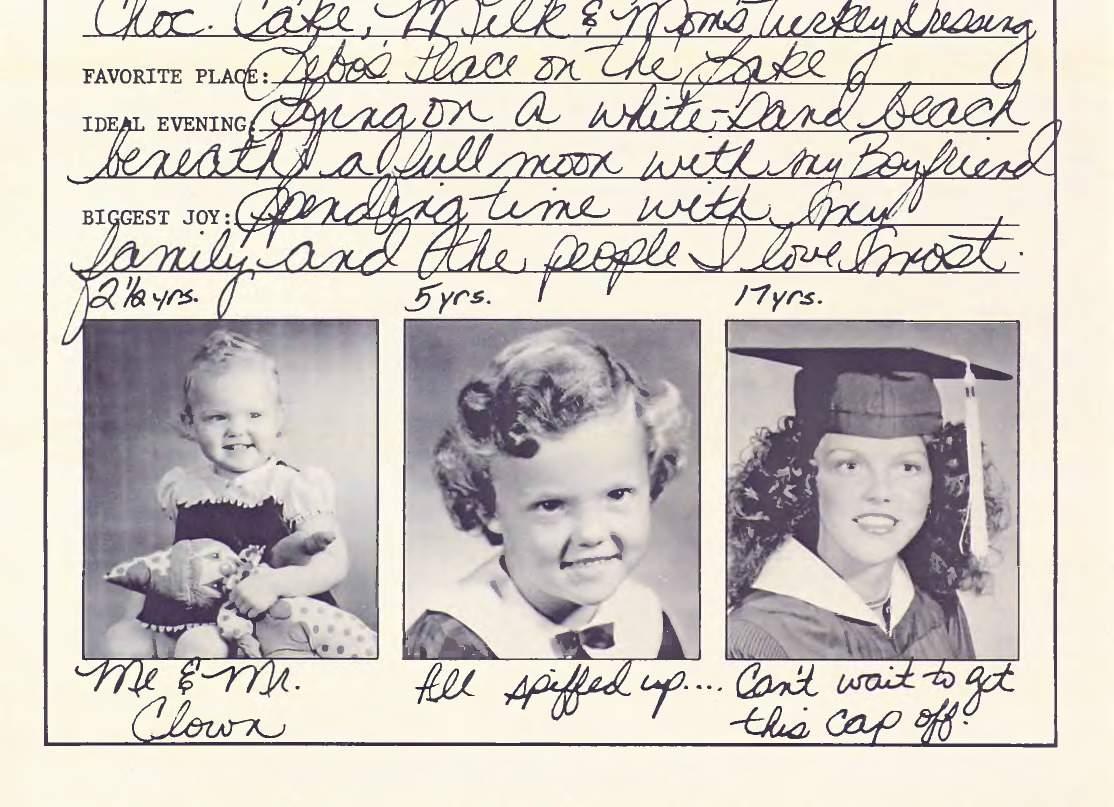 Choc. Cake, Milk & Mom's Turkey Dressing
FAVORITE PLACE: Bebo's Place on the Lake
IDEAL EVENING: Lying on a white-sand beach
beneath a full moon with my Boyfriend
BIGGEST JOY: Spending time with my
family and the people I love most.
2 1/2 yrs. 5 yrs. 17 yrs.
Me & Mr. Clown
All spiffed up....
Can't wait to get
this cap off!